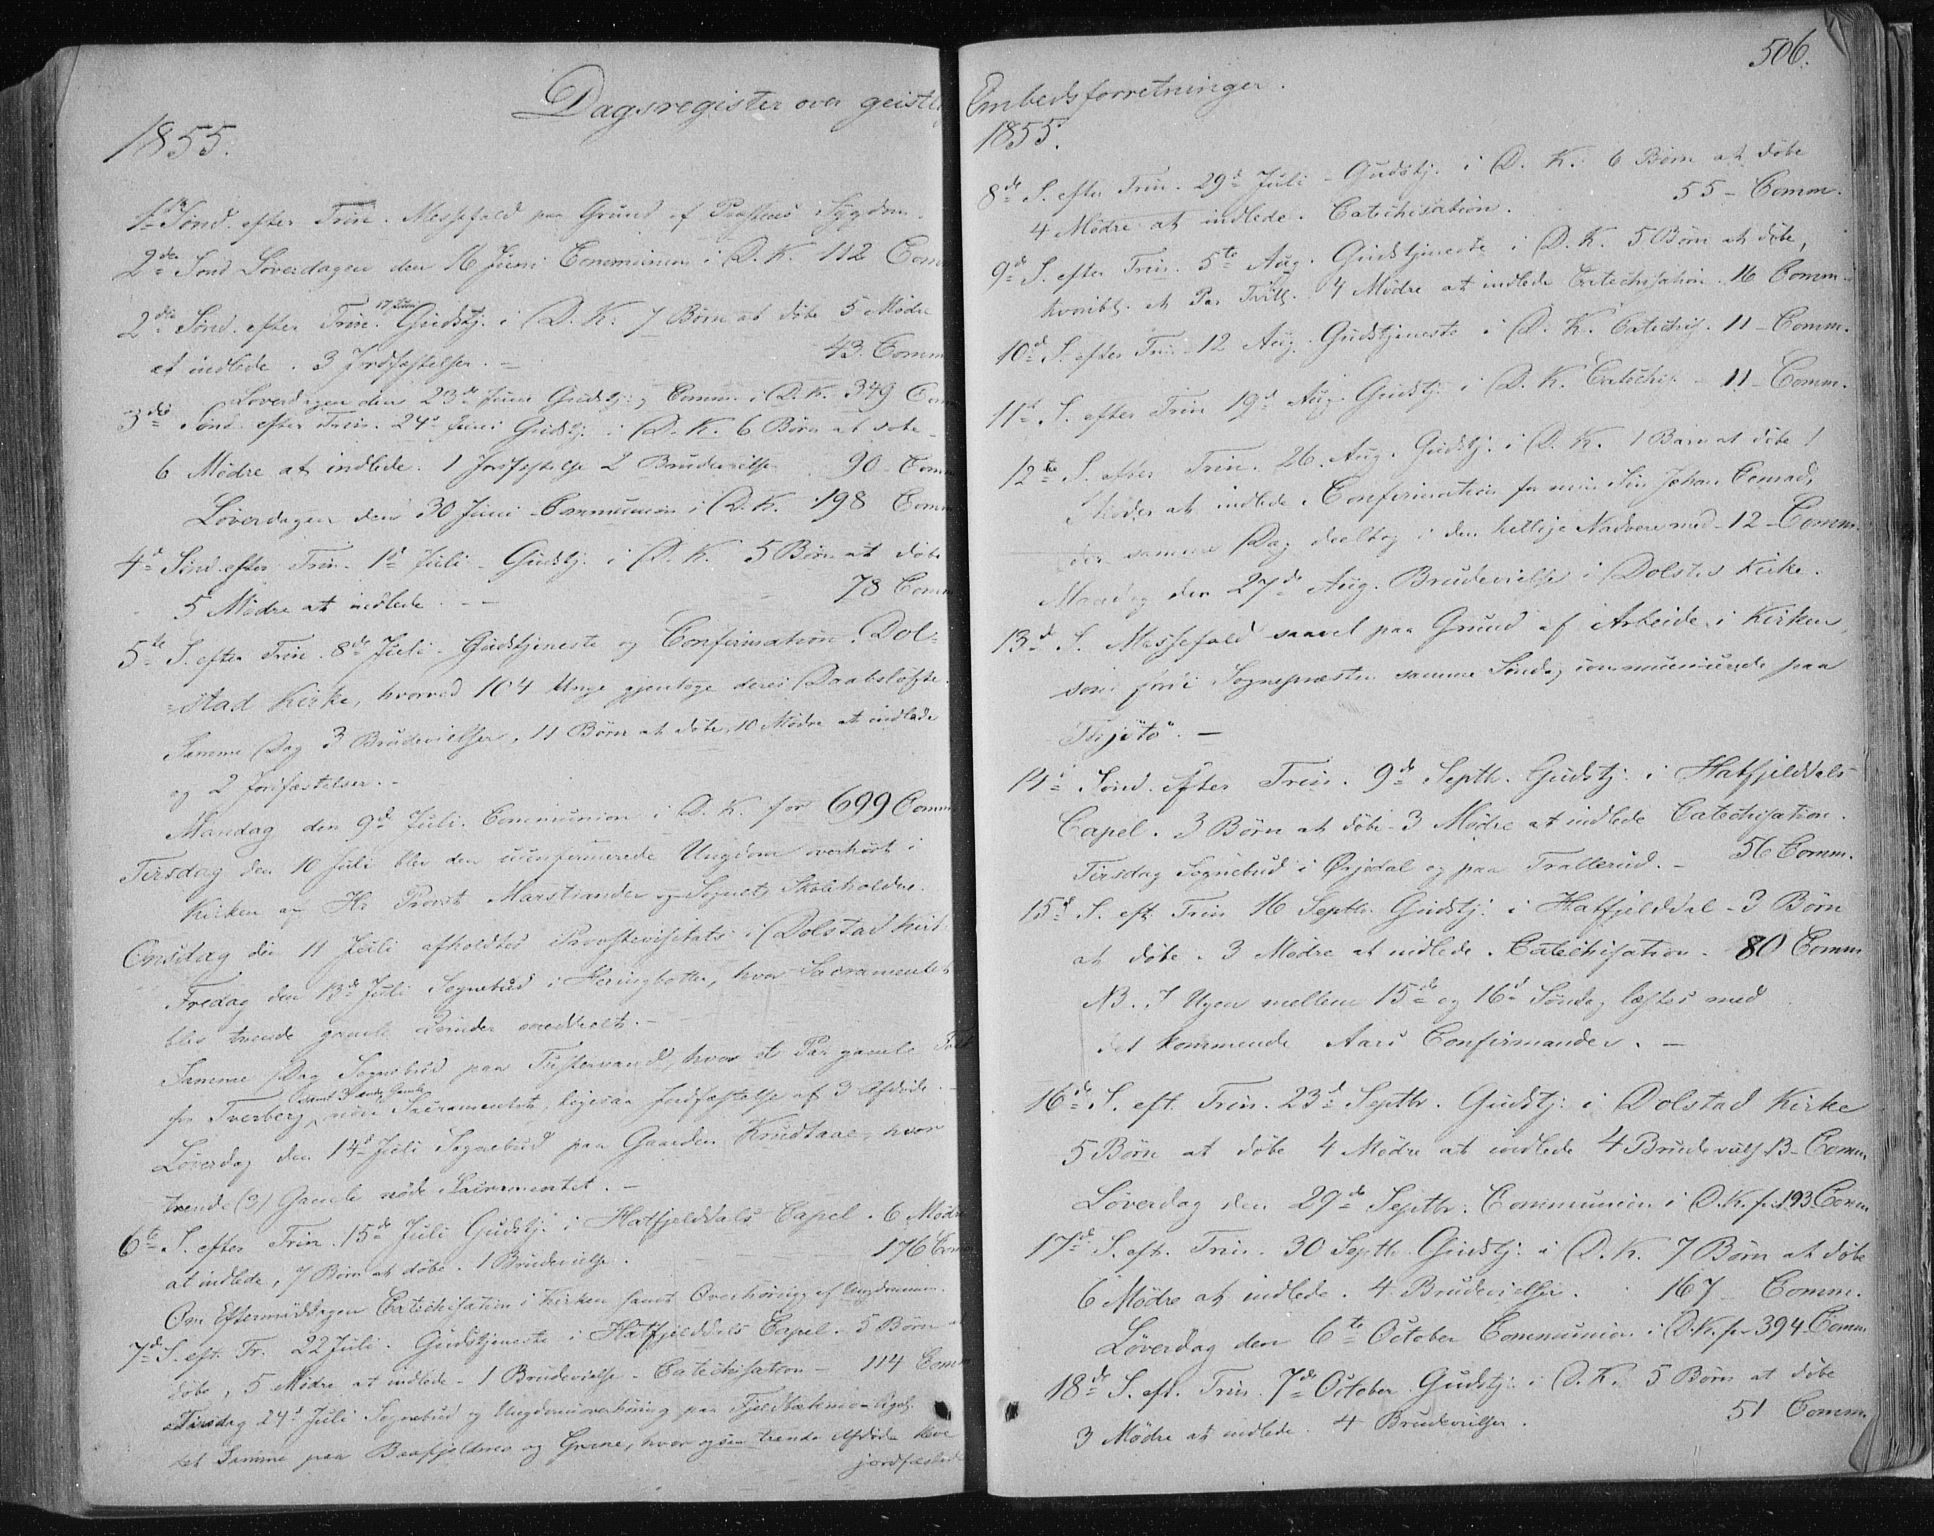 Dagsregister over geistl
1855.
1ste Sønd. efter Trin. Messefald paa Grund af Præstens Sygdom.
2den Sønd Løverdagen den 16 Juni Communion i D. K. 112 Com
2den Sønd. efter Trin. 17 Juni Gudstj. i D. K. 7 Børn at døbe 5 Mødre
at indlede. 3 Jordfæstelser. – 43 Comm
Løverdagen den 23de Juni Gudstj. og Comm. i D. K. 349 Com
3die Sønd. efter Trin. 24de Juni Gudstj. i D. K. 6 Børn at døbe
6 Mødre at indlede. 1 Jordfæstelse 2 Brudevielser 90 – Comm
Løverdagen den 30 Juni Communion i D. K. 198 Comm
4d Sønd. efter Trin. 1d Juli – Gudstj. i D. K. 5 Børn at døbe
5 Mødre at indlede. – – 78 Comm
5te S. efter Trin. 8de Juli – Gudstjeneste og Confirmation i Dol-
-stad Kirke, hvorved 104 Unge gjentoge deres Daabsløfte.
Samme Dag 3 Brudevielser, 11 Børn at døbe, 10 Mødre at indlede
og 2 Jordfæstelser. –
Mandag den 9d Juli. Communion i D. K. for 699 Comm
Tirsdag den 10 Juli blev den uconfirmerede Ungdom overhørt i
Kirken af Hr Provst Marstrander og Sognets Skoleholdere.
Onsdag den 11 Juli afholdtes Provstevisitats i Dolstad Kirk
Fredag den 13de Juli Sognebud i Heringbotten, hvor Sacramentet
blev trende gamle Qvinder meddeelt. –
Samme Dag Sognebud paa Tustervand, hvor et Par gamle Folk
fra Tverberg samt 3 andre Gamle nøde Sacramentet, ligesaa Jordfæstelse af 3 Afdøde. –
Løverdag den 14d Juli Sognebud paa Gaarden Krudtaae, hvor
trende (3) Gamle nøde Sacramentet. –
6te S. efter Trin. 15de Juli Gudstj. i Hatfjelddals Capel. 6 Mødre
at indlede, 7 Børn at døbe. 1 Brudevielse. 176 Comm
Om Eftermiddagen Catechisation i Kirken samt Overhøring af Ungdommen.
7d S. eft. Tr. 22 Juli. Gudstjeneste i Hatfjelddals Capel – 5 Børn at
døbe, 5 Mødre at indlede – 1 Brudevielse – Catechisation – 114 Comm
Tirsdag 24d Juli Sognebud og Ungdomsoverhøring paa Fjeldbækmo – Ligel.
det Samme paa Baafjeldmo og Grane, hvor ogsaa trende Afdøde bleve
jordfæstede
506.
Embedsforretninger.
1855.
8de S. efter Trin. 29d Juli – Gudstj. i D. K. 6 Børn at døbe
4 Mødre at indlede. Catechisation. 55 – Comm.
9d S. efter Trin. 5te Aug. Gudstjeneste i D. K. 5 Børn at døbe,
hvoribl. et Par Tvill. 4 Mødre at indlede Catechisation. 16 Comm.
10d S. efter Trin. 12 Aug. Gudstjeneste i D. K. Catechis. 11 – Comm.
11t S. efter Trin 19d Aug. Gudstj. i D. K. Catechis. – 11 – Comm.
12te S. efter Trin. 26. Aug. Gudstj. i D. K. 1 Barn at døbe 1
Moder at indlede. Confirmation for min Søn Johan Conrad,
der samme Dag deeltog i den hellige Nadvere med – 12 – Comm.
Mandag den 27de Aug. Brudevielse i Dolsted Kirke.
13d S. Messefald saavel paa Grund af Arbeide i Kirken
som fordi Sognepræsten samme Søndag communicerede paa
Thjøtø. –
14d Sønd. efter Trin. 9de Septbr. Gudstj. i Hatfjelddals
Capel. 3 Børn at døbe – 3 Mødre at indlede Catechisation.
Tirsdag Sognebud i Ørjedal og paa Trallerud. – 56 Comm.
15d S. eft. Trin 16 Septbr. Gudstj. i Hatfjelddal – 3 Børn
at døbe. 3 Mødre at indlede. Catechisation. 80 Comm
NB. I Ugen mellem 15de og 16d Søndag læstes med
det kommende Aars Confirmander. –
16de S. eft. Trin. 23d Septbr. Gudstj. i Dolstad Kirke
5 Børn at døbe 4 Mødre at indlede 4 Brudevielf. 13 – Comm
Løverdag den 29de Septbr. Communion i D. K. for 193 Comm
17de S. eft. Trin. 30 Septbr. Gudstj. i D. K. 7 Børn at døbe
6 Mødre at indlede. 4 Brudevielser. 167 Comm.
Løverdag den 6te October Communion i D. K. for 394 Comm
18de S. eft. Trin. 7de October Gudstj. i D. K. 5 Børn at døbe
3 Mødre at indlede. 4 Brudevielser. 51 Comm.